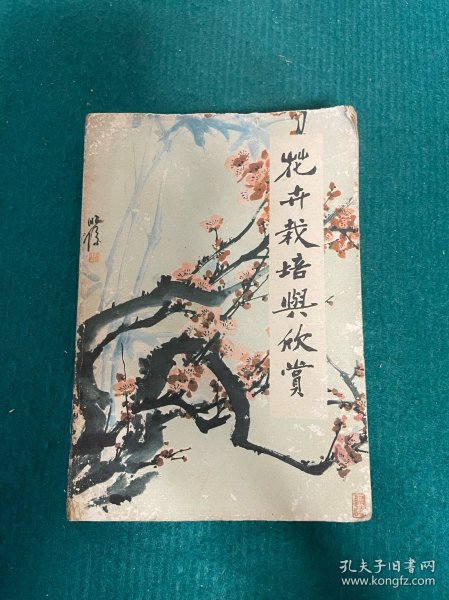 花卉栽培與欣赏
孔夫子旧书网
www.kongfz.com